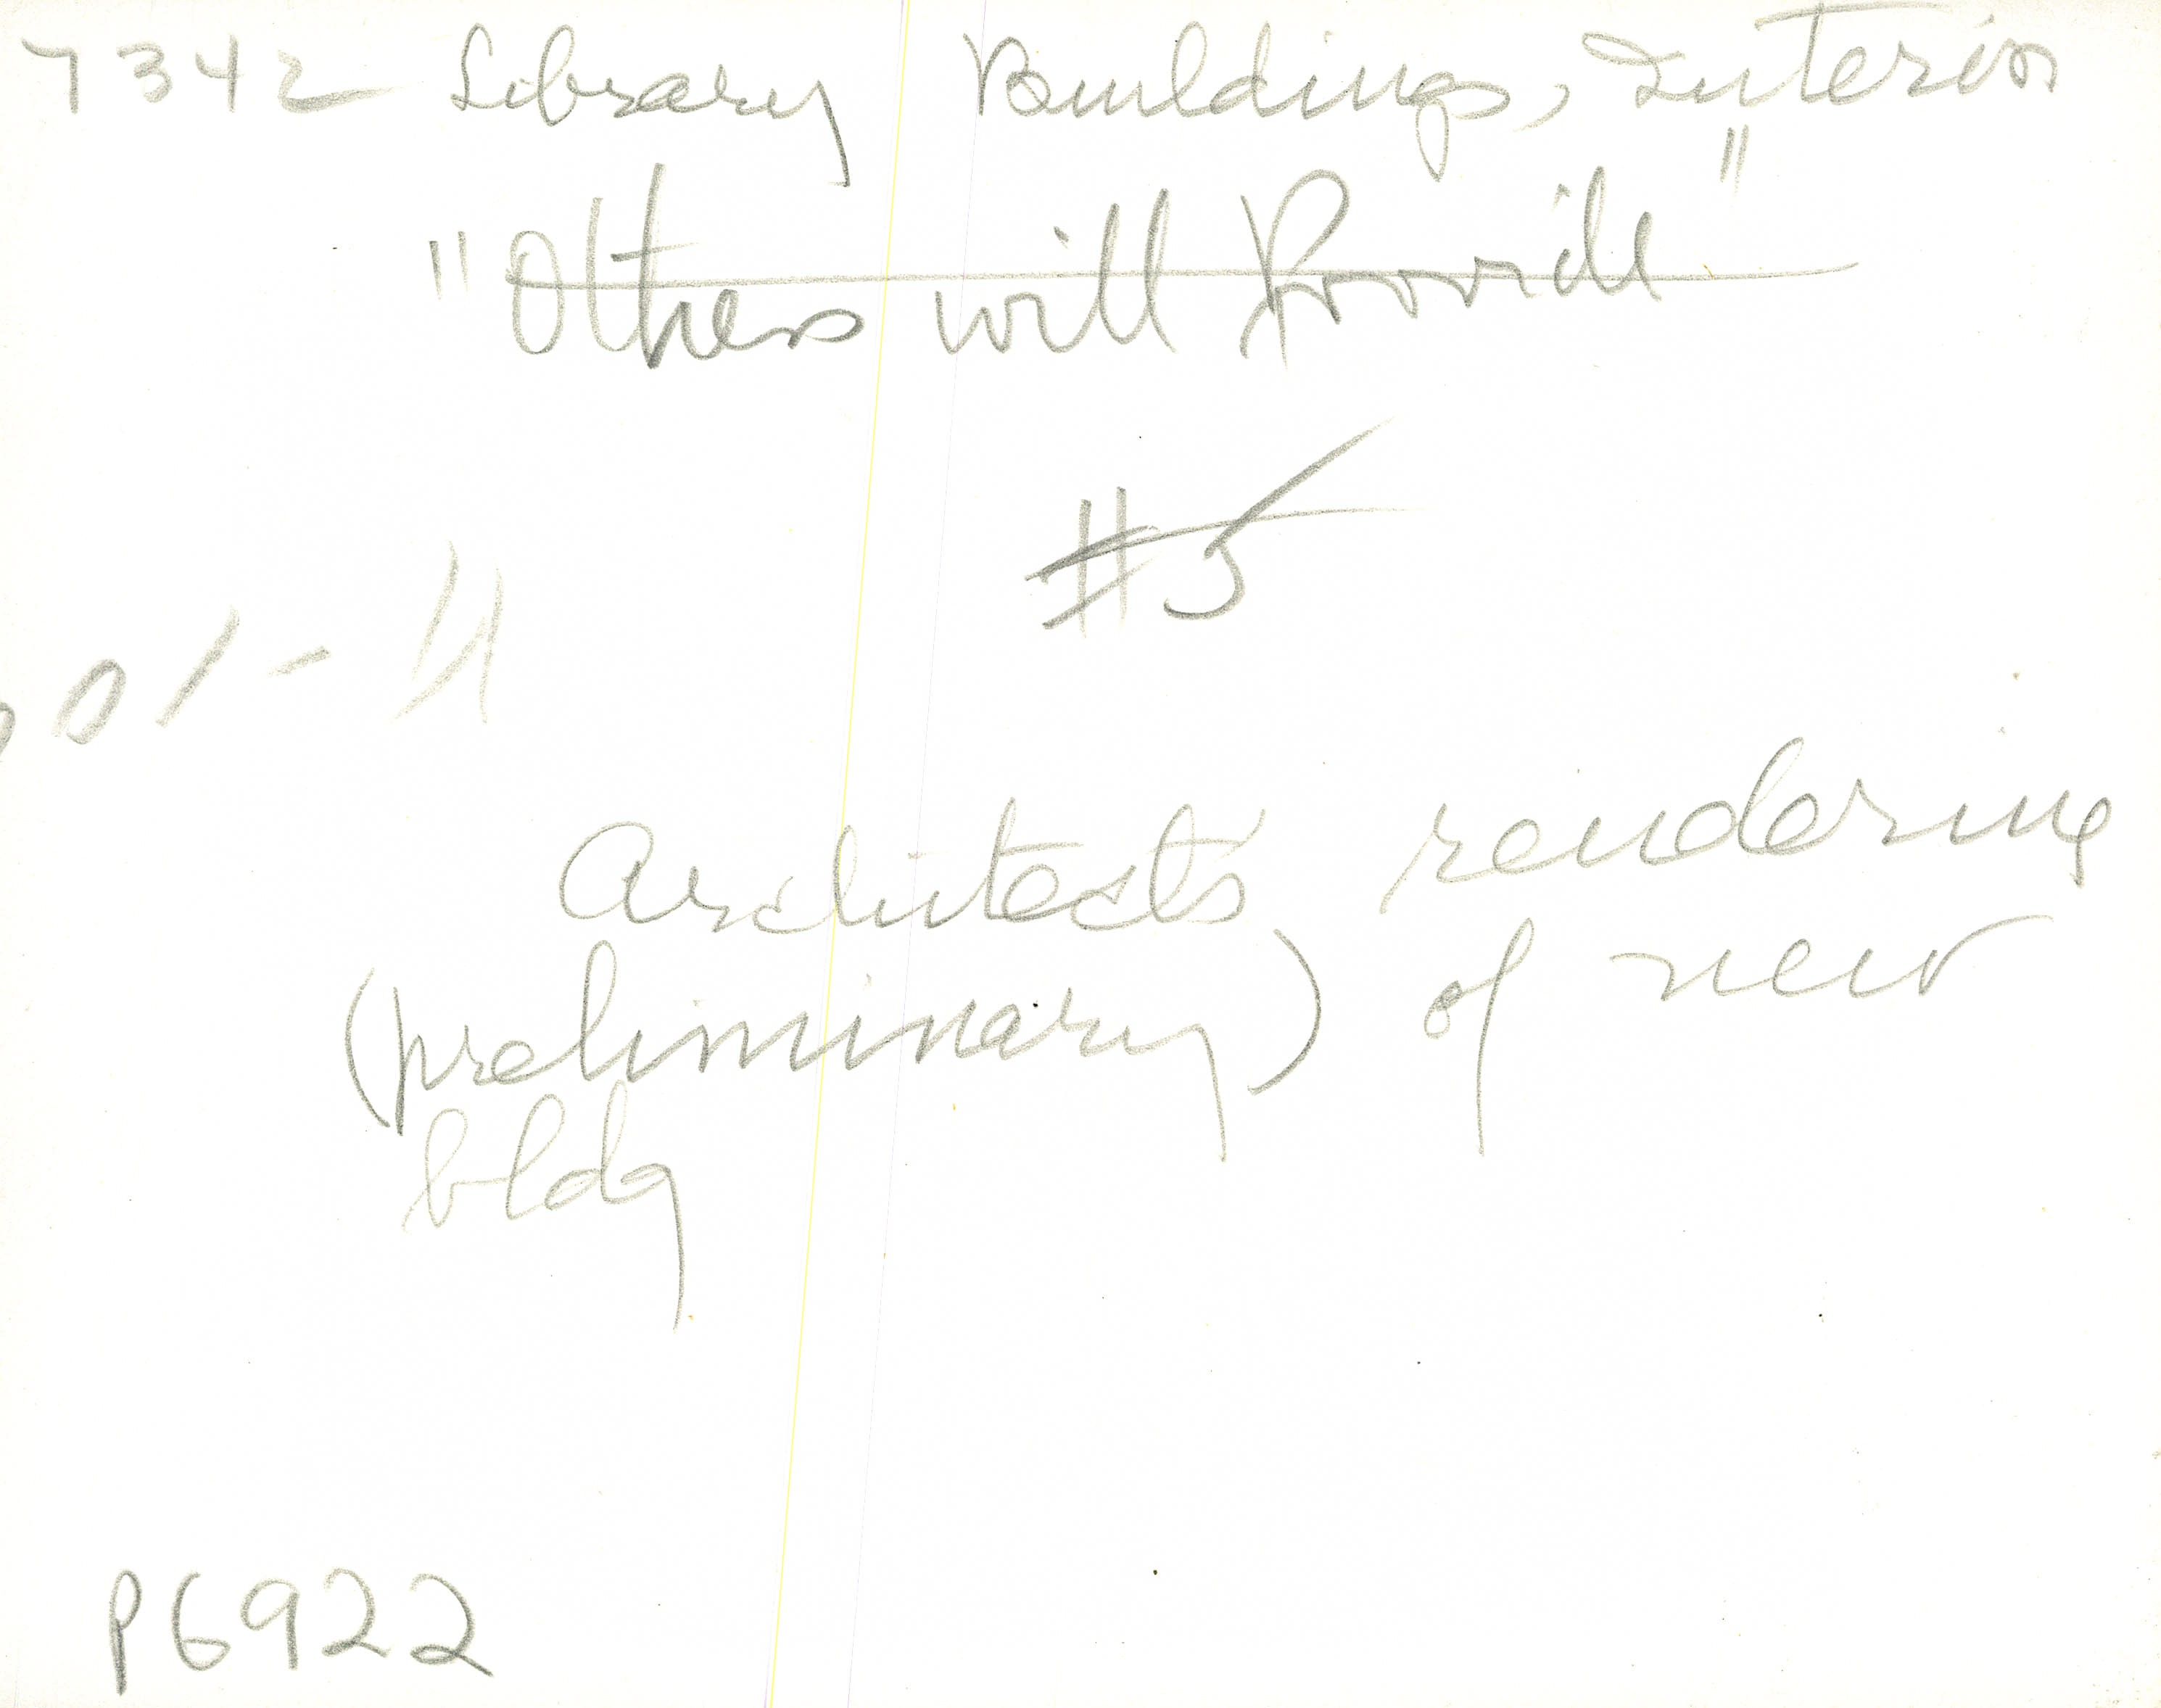 7342 Library Buildings, Interior
"Others will Provide"
#5
Architects rendering
(preliminary) of new
bldg
P6922